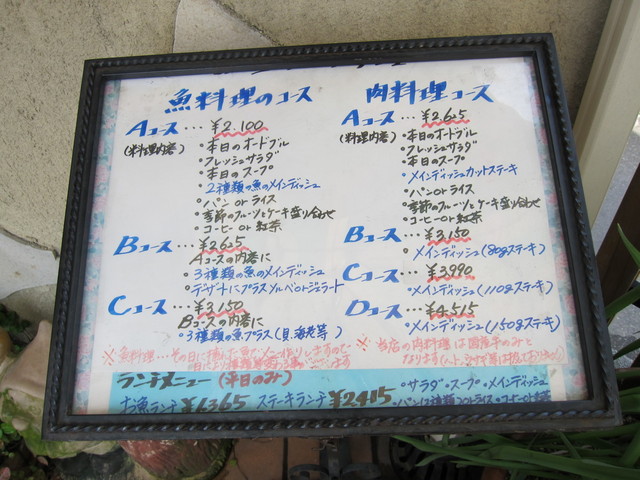 魚料理のコース
Aコース…¥2.100
(料理内容)
・本日のオードブル
・フレッシュサラダ
・本日のスープ
・2種類の魚のメインディッシュ
・パン or ライス
・季節のフルーツとケーキ盛り合わせ
・コーヒー or 紅茶
Bコース…¥2.625
Aコースの内容に
・3種類の魚のメインディッシュ
・デザートにプラスソルベorジェラート
Cコース…¥3.150
Bコースの内容に
・3種類の魚プラス(貝、海老等)
※魚料理…その日に
肉料理コース
Aコース…¥2.625
(料理内容)
・本日のオードブル
・フレッシュサラダ
・本日のスープ
・メインディッシュカットステーキ
・パン or ライス
・季節のフルーツとケーキ盛り合わせ
・コーヒー or 紅茶
Bコース…¥3,150
・メインディッシュ(80gステーキ)
Cコース…¥3990
・メインディッシュ(110gステーキ)
Dコース…¥4,515
・メインディッシュ(150gステーキ)
※当店の肉料理は国産牛のみと
なります
ランチメニュー(平日のみ)
お魚ランチ¥1,365 ステーキランチ¥2415
・サラダ・スープ・メインディッシュ
・パン(2種類)orライス・コーヒーor紅茶